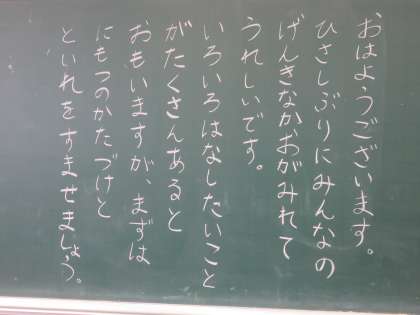 おはようございます。
ひさしぶりにみんなの
げんきなかおがみれて
うれしいです。
いろいろはなしたいこと
がたくさんあると
おもいますが、まずは
にもつのかたづけと
といれをすませましょう。